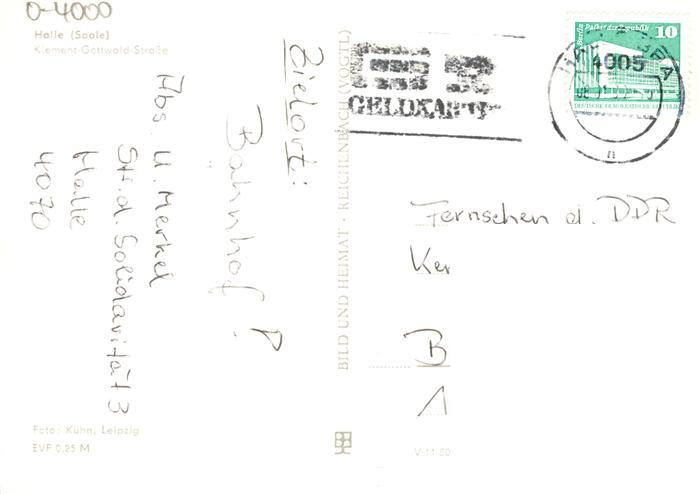 0-4000
Halle (Saale)
Klement-Gottwald-Straße
Zielort:
Bahnhof!
Abs. U. Merkel
Str. d. Solidarität 3
Halle
4070
Foto: Kühn, Leipzig
EVP 0,25 M
BILD UND HEIMAT · REICHENBACH (VOGTL)
V 11 80
GELDKARTE
4005
Berlin, Palast der Republik 10
DEUTSCHE DEMOKRATISCHE REPUBLIK
Fernsehen d. DDR
Ker
B
1